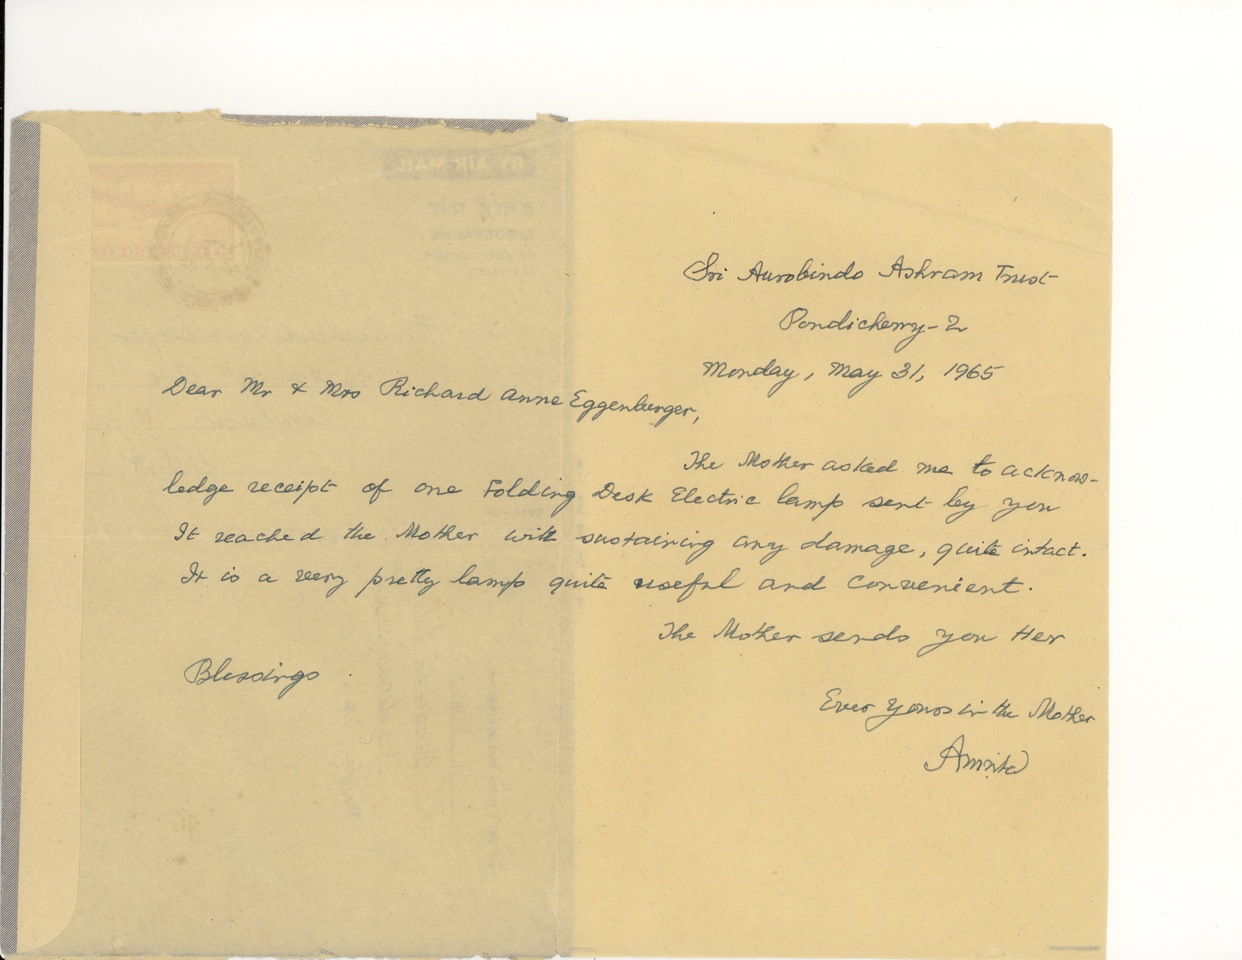 BY AIR MAIL
Sri Aurobindo Ashram Trust
Pondicherry-2
Monday, May 31, 1965
Dear Mr & Mrs Richard Anne Eggenberger,
The Mother asked me to acknow-
ledge receipt of one Folding Desk Electric lamp sent by you
It reached the Mother with sustaining any damage, quite intact.
It is a very pretty lamp quite useful and convenient.
The Mother sends you Her
Blessings.
Ever yours in the Mother
Amrita